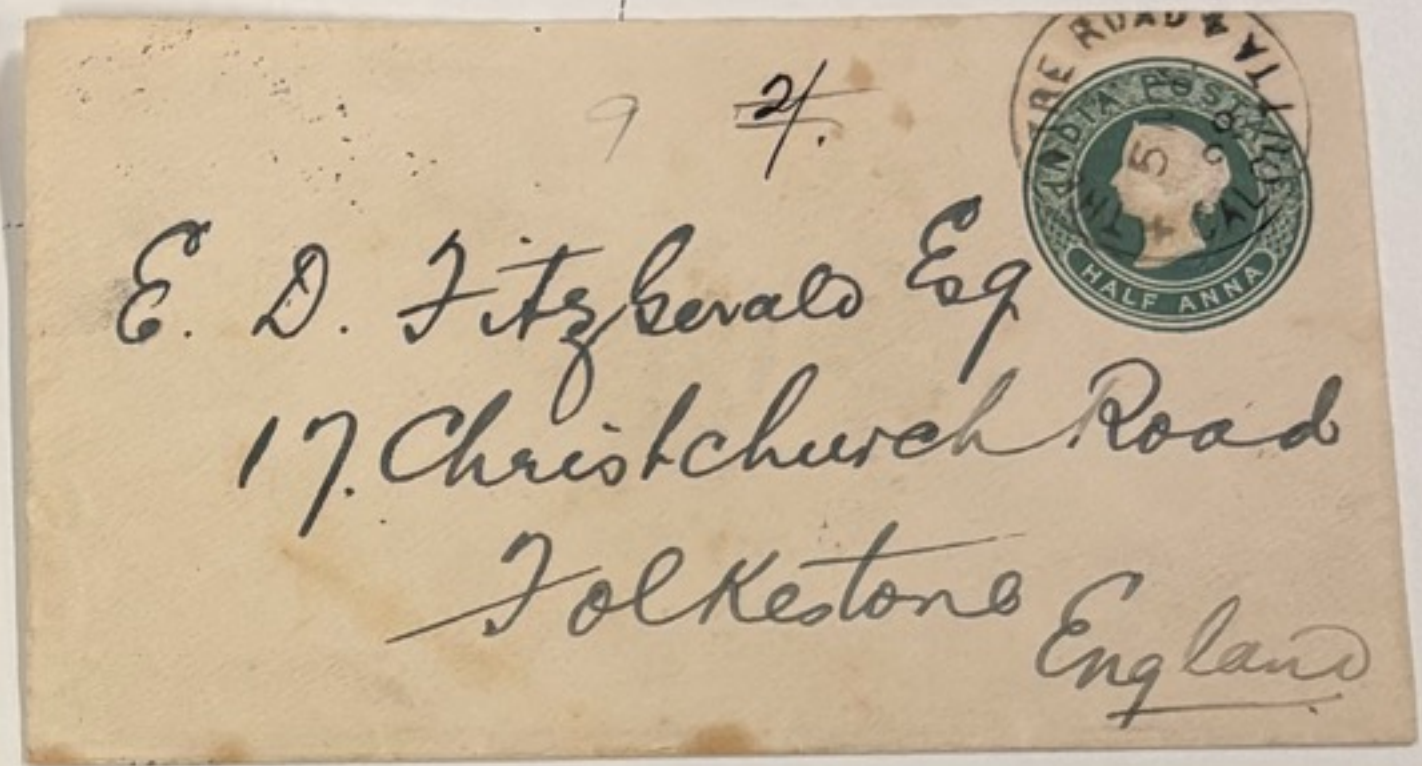 9 2/.
INDIA POSTAGE
HALF ANNA
E. D. Fitzgerald Esq
17. Christchurch Road
Folkestone
England